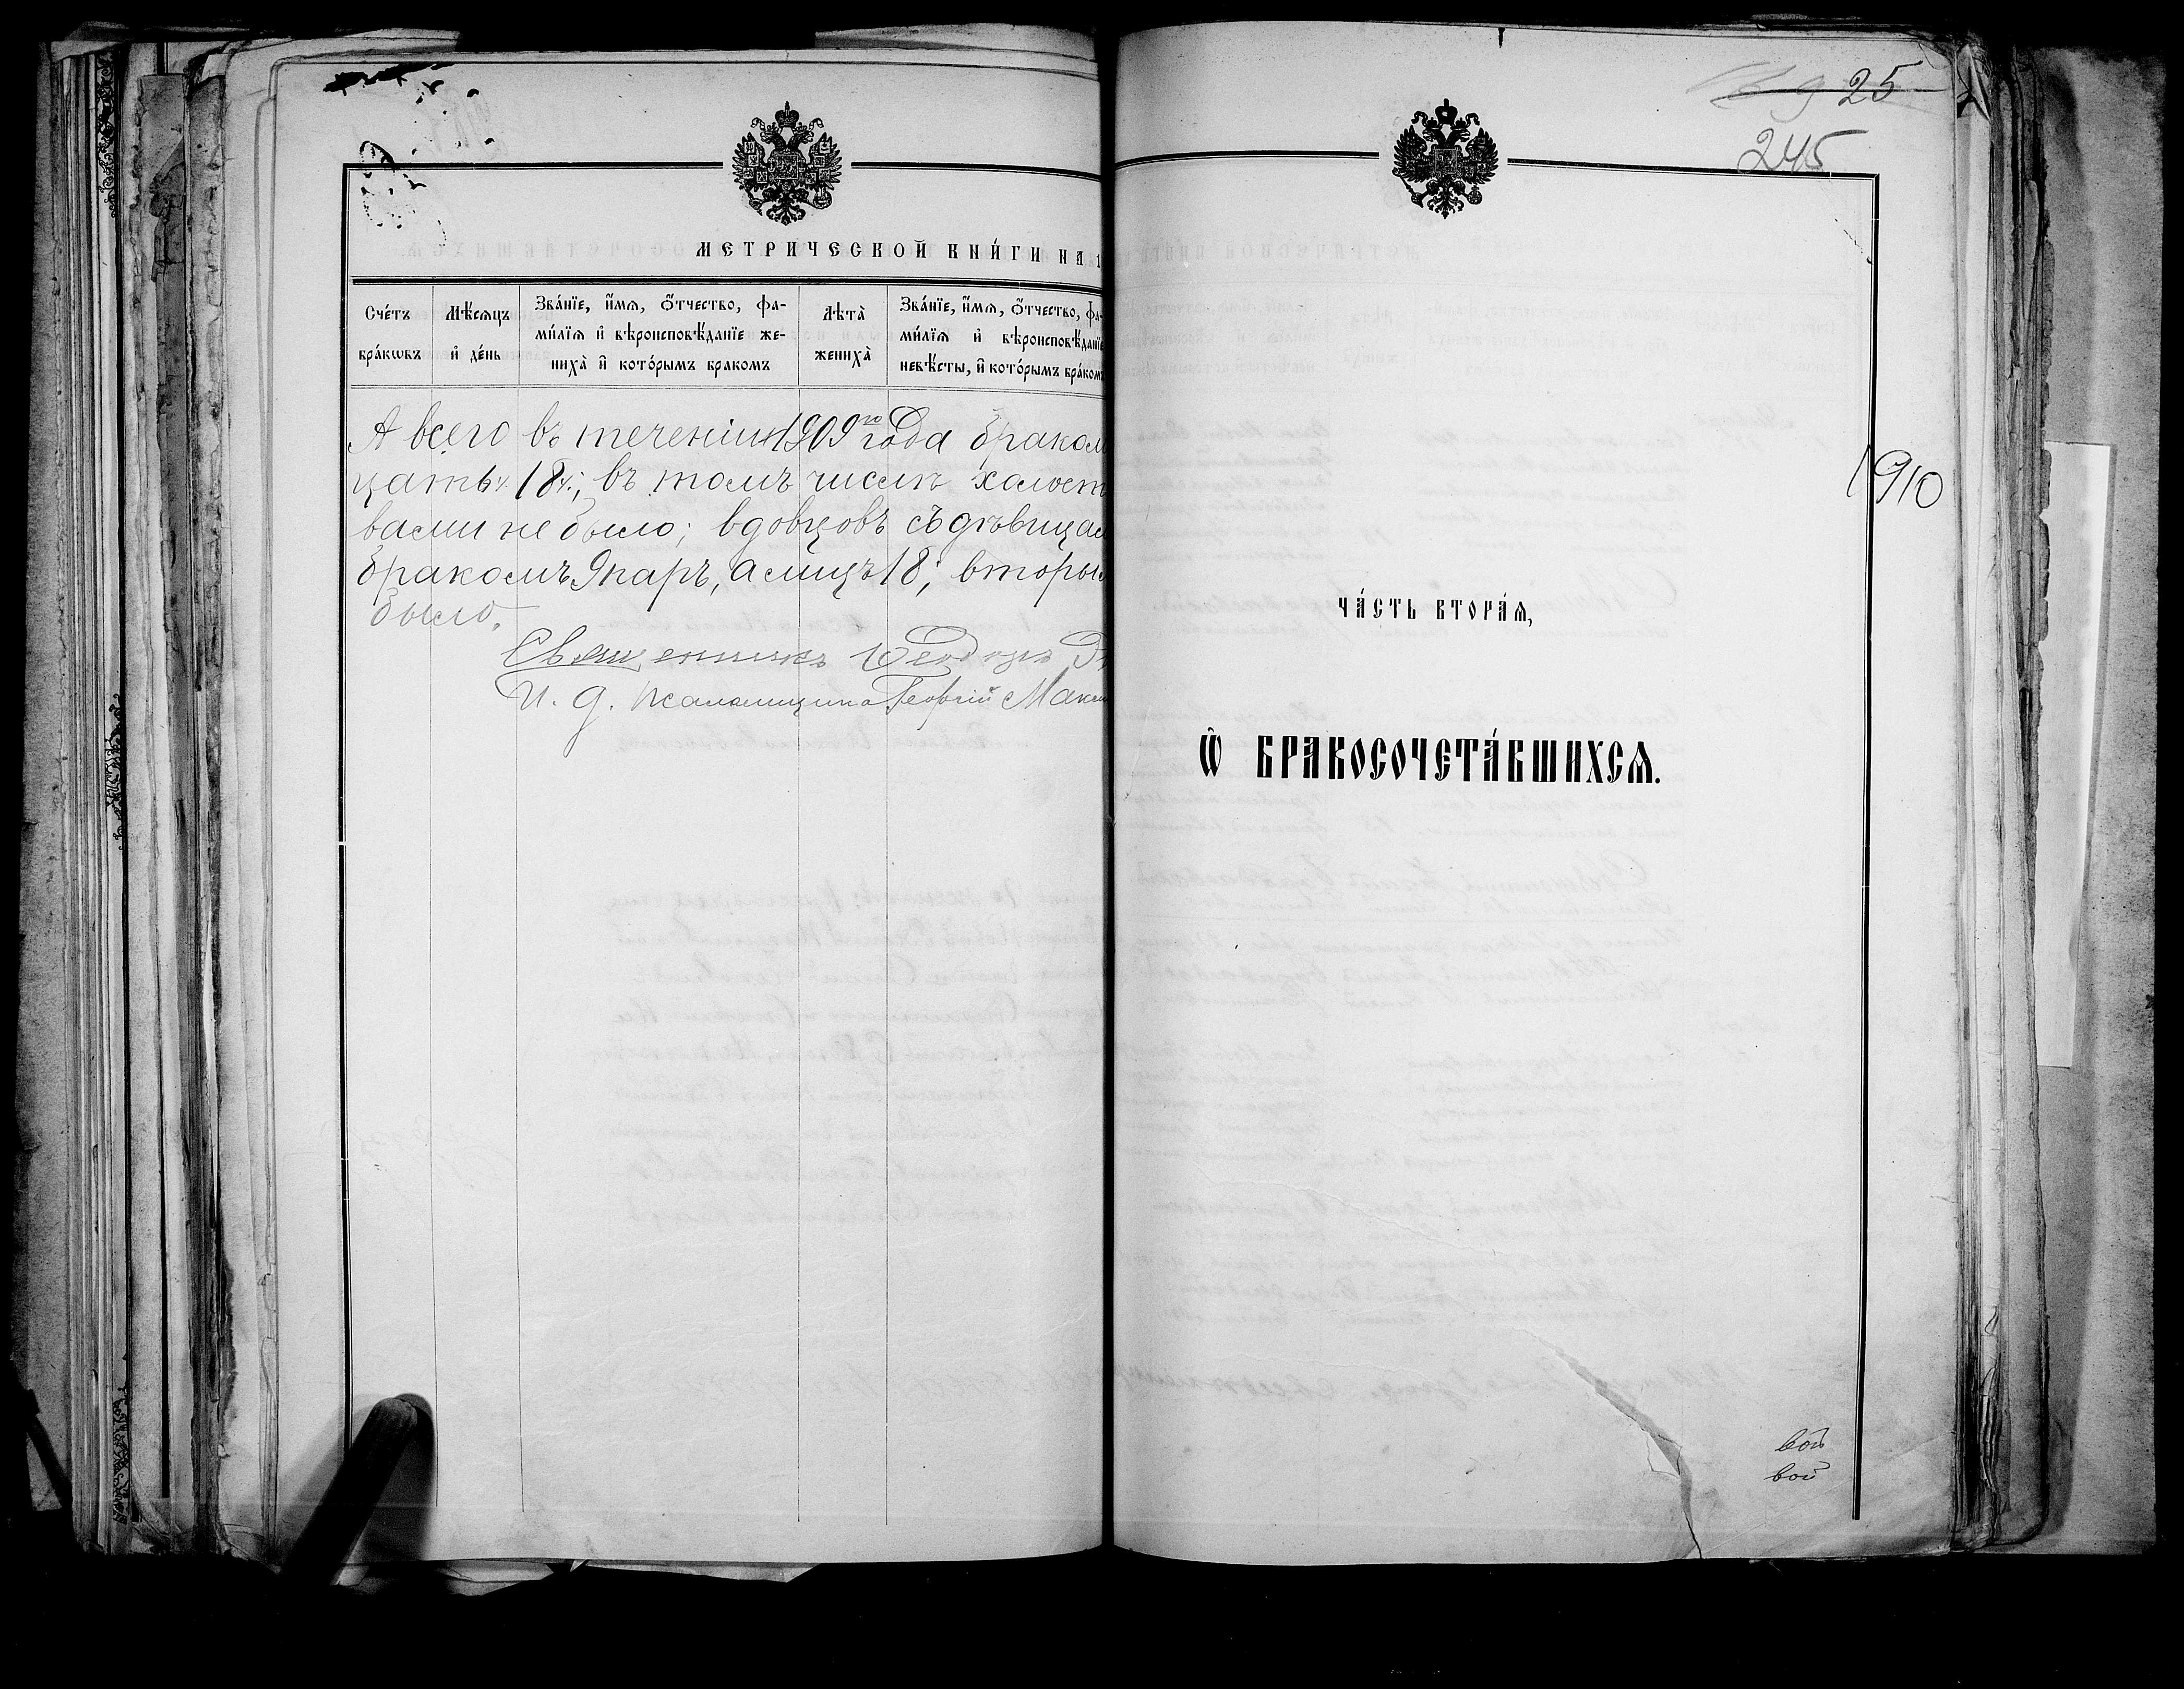 МЕТРИЧЕСКОЙ КНИ́ГИ НА 1
Сче́тъ бра́кѡвъ
Мѣ́сѧцъ и҆ де́нь
Зва́нїе, и҆́мѧ, ѻ҆́тчество, фа-
ми́лїѧ и҆ вѣроисповѣ́данїе же-
ниха̀ и҆ кото́рымъ бракомъ
Лѣта̀ жениха̀
Зва́нїе, и҆́мѧ, ѻ҆́тчество, фа-
ми́лїѧ и҆ вѣроисповѣ́данїе
невѣ́сты, и҆ кото́рымъ бра́комъ
А всего въ теченіи 1909го года браком
цать ч. 18 ч.; въ томъ числѣ холост
вами не было; вдовцовъ съ дѣвицам
бракомъ 9 паръ, а лицъ 18; вторым
было.
Священникъ Ѳеодоръ
И. д. псаломщика Георгій Макси
25
245
1910
ЧА́СТЬ ВТОРА́Ѧ,
Ѽ БРАКОСОЧЕТА́ВШИХСѦ.
вой
вой